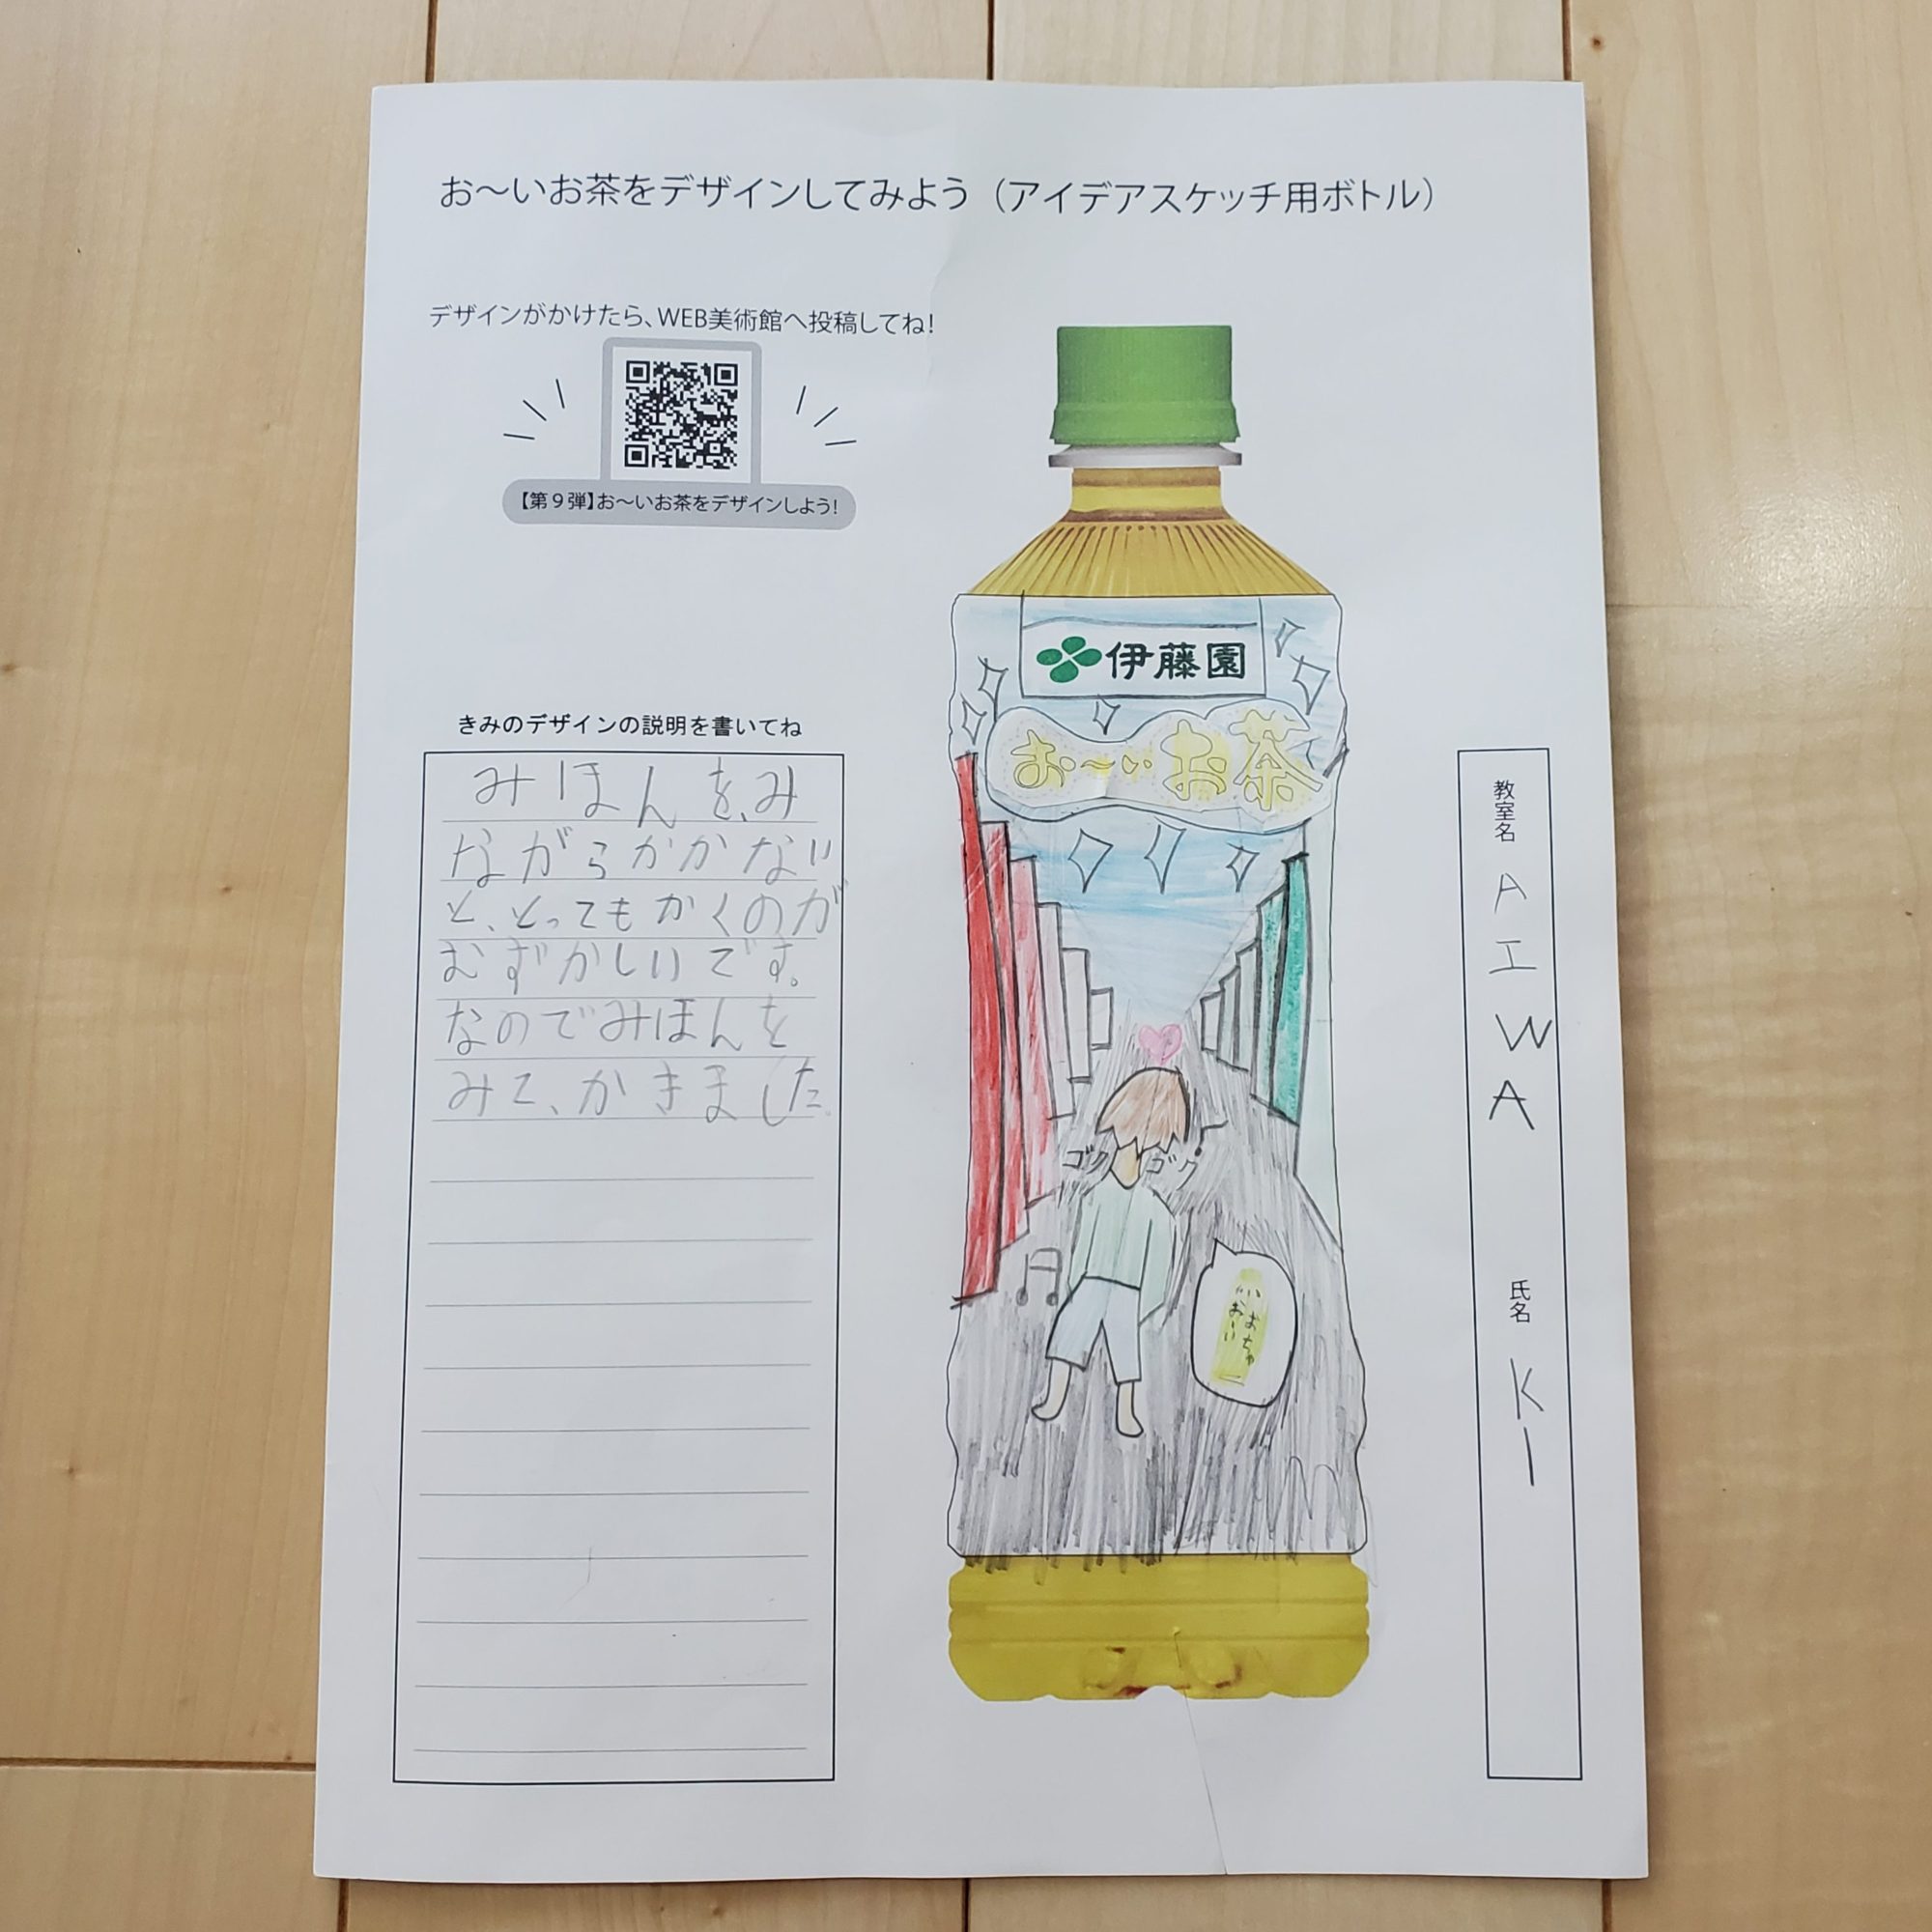 お〜いお茶をデザインしてみよう（アイデアスケッチ用ボトル）
デザインがかけたら、WEB美術館へ投稿してね！
【第９弾】お〜いお茶をデザインしよう！
きみのデザインの説明を書いてね
みほんを、み
ながらかかない
と、とってもかくのが
むずかしいです。
なのでみほんを
みて、かきました。
伊藤園
お〜いお茶
ゴク ゴク
教室名
AIWA
氏名
KI